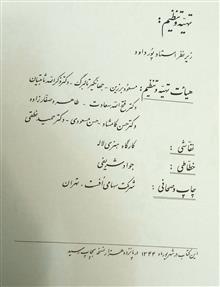 تهیه و تنظیم:
زیر نظر استاد پورداود
هیئت تهیه و تنظیم: مسعود برزین - جهانگیر تالبرگ - دکتر ذکراله ثابتیان
دکتر فتح الله سعادت - طاهره صفارزاده
دکتر حسن کامشاد - حسن مسعودی - دکتر حمید نطقی
نقاشی: کارگاه هنری لاله
خطاطی: جواد شریفی
چاپ و صحافی: شرکت سهامی افست . تهران
این کتاب در شهریور ماه ۱۳۴۴ در پانزده هزار نسخه بچاپ رسید